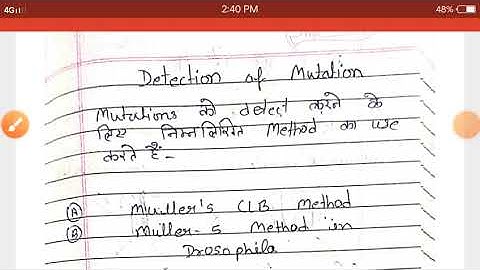 4G
2:40 PM
48%
Detection of Mutation
Mutations को detect करने के
लिए निम्नलिखित Method का use
करते हैं -
(A) Muller's CLB Method
(B) Muller-5 Method in
Drosophila